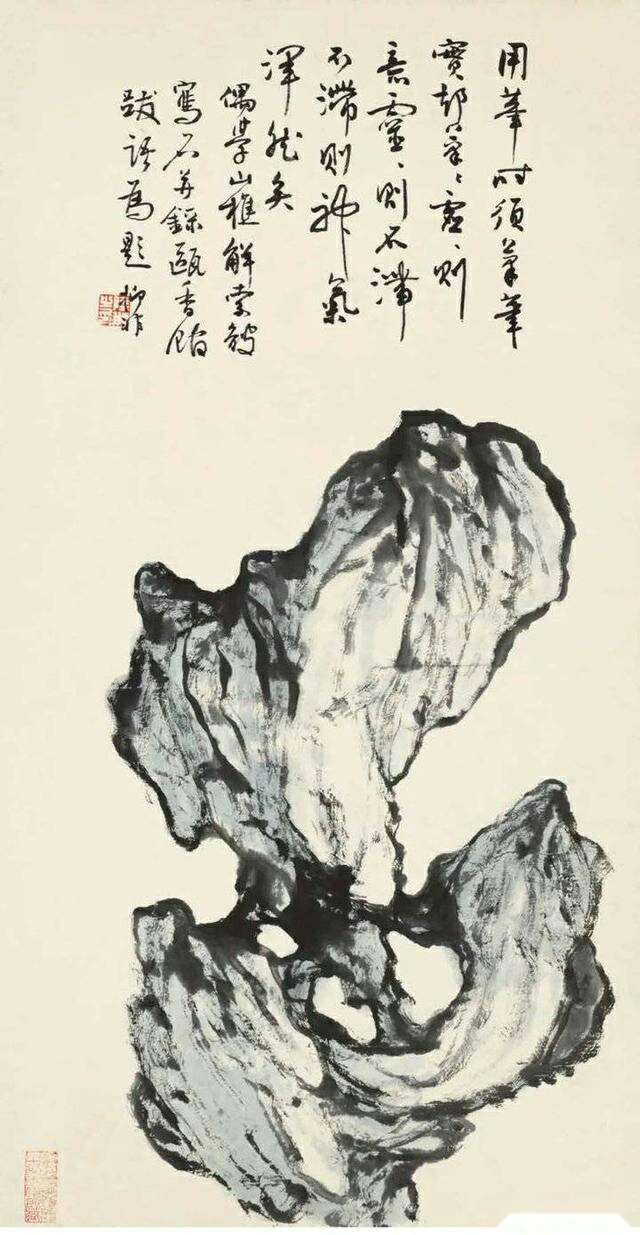 用筆时須筆筆
實却筆〻虛〻則
意靈〻則不滯
不滯則神氣
渾然矣
偶學山樵解索皴
寫石并錄甌香館
跋語為題